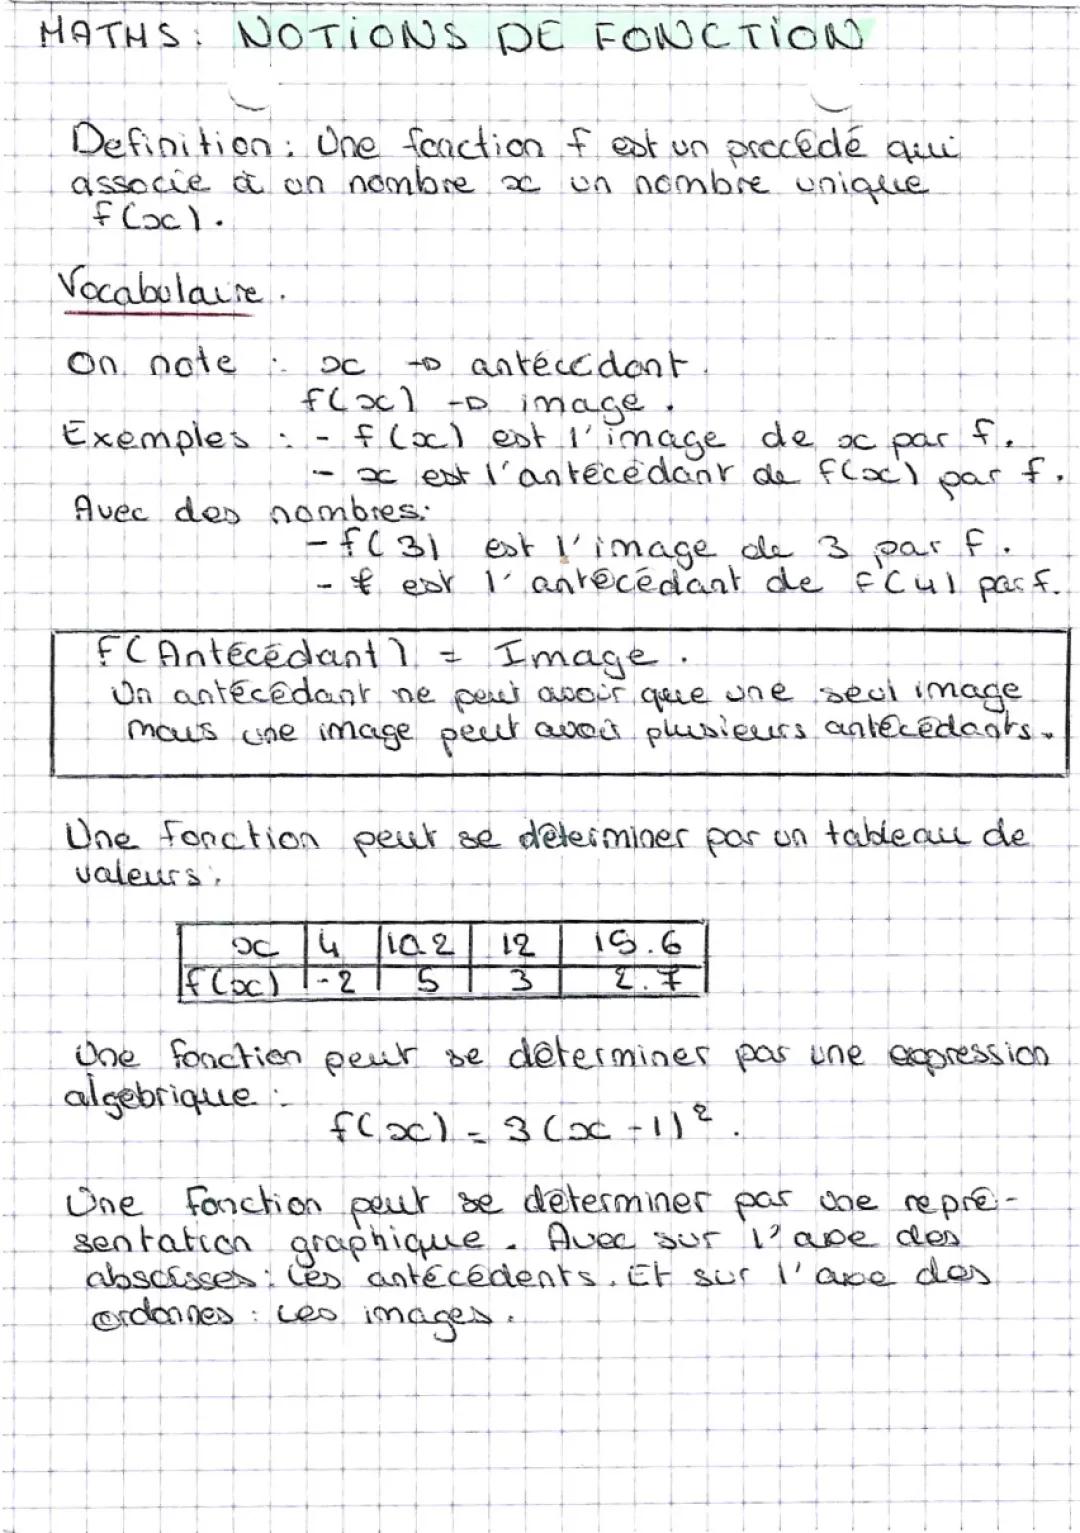 MATHS: NOTIONS DE FONCTION
Definition: Une fonction f est un procédé qui
associe à un nombre x un nombre unique
f(x).
Vocabulaire.
On note : x → antécédant.
f(x) → image.
Exemples : - f(x) est l'image de x par f.
- x est l'antécédant de f(x) par f.
Avec des nombres:
- f(3) est l'image de 3 par f.
- est l'antécédant de f(4) par f.
f(Antécédant) = Image.
Un antécédant ne peut avoir que une seul image
mais une image peut avoir plusieurs antécédants.
Une fonction peut se déterminer par un tableau de
valeurs:
x 4 10.2 12 15.6
f(x) -2 5 3 2.7
Une fonction peut se déterminer par une expression
algébrique :
f(x) = 3(x-1)².
Une fonction peut se déterminer par une repré-
sentation graphique. Avec sur l'axe des
abscisses : Les antécédents. Et sur l'axe des
ordonnes : Les images.